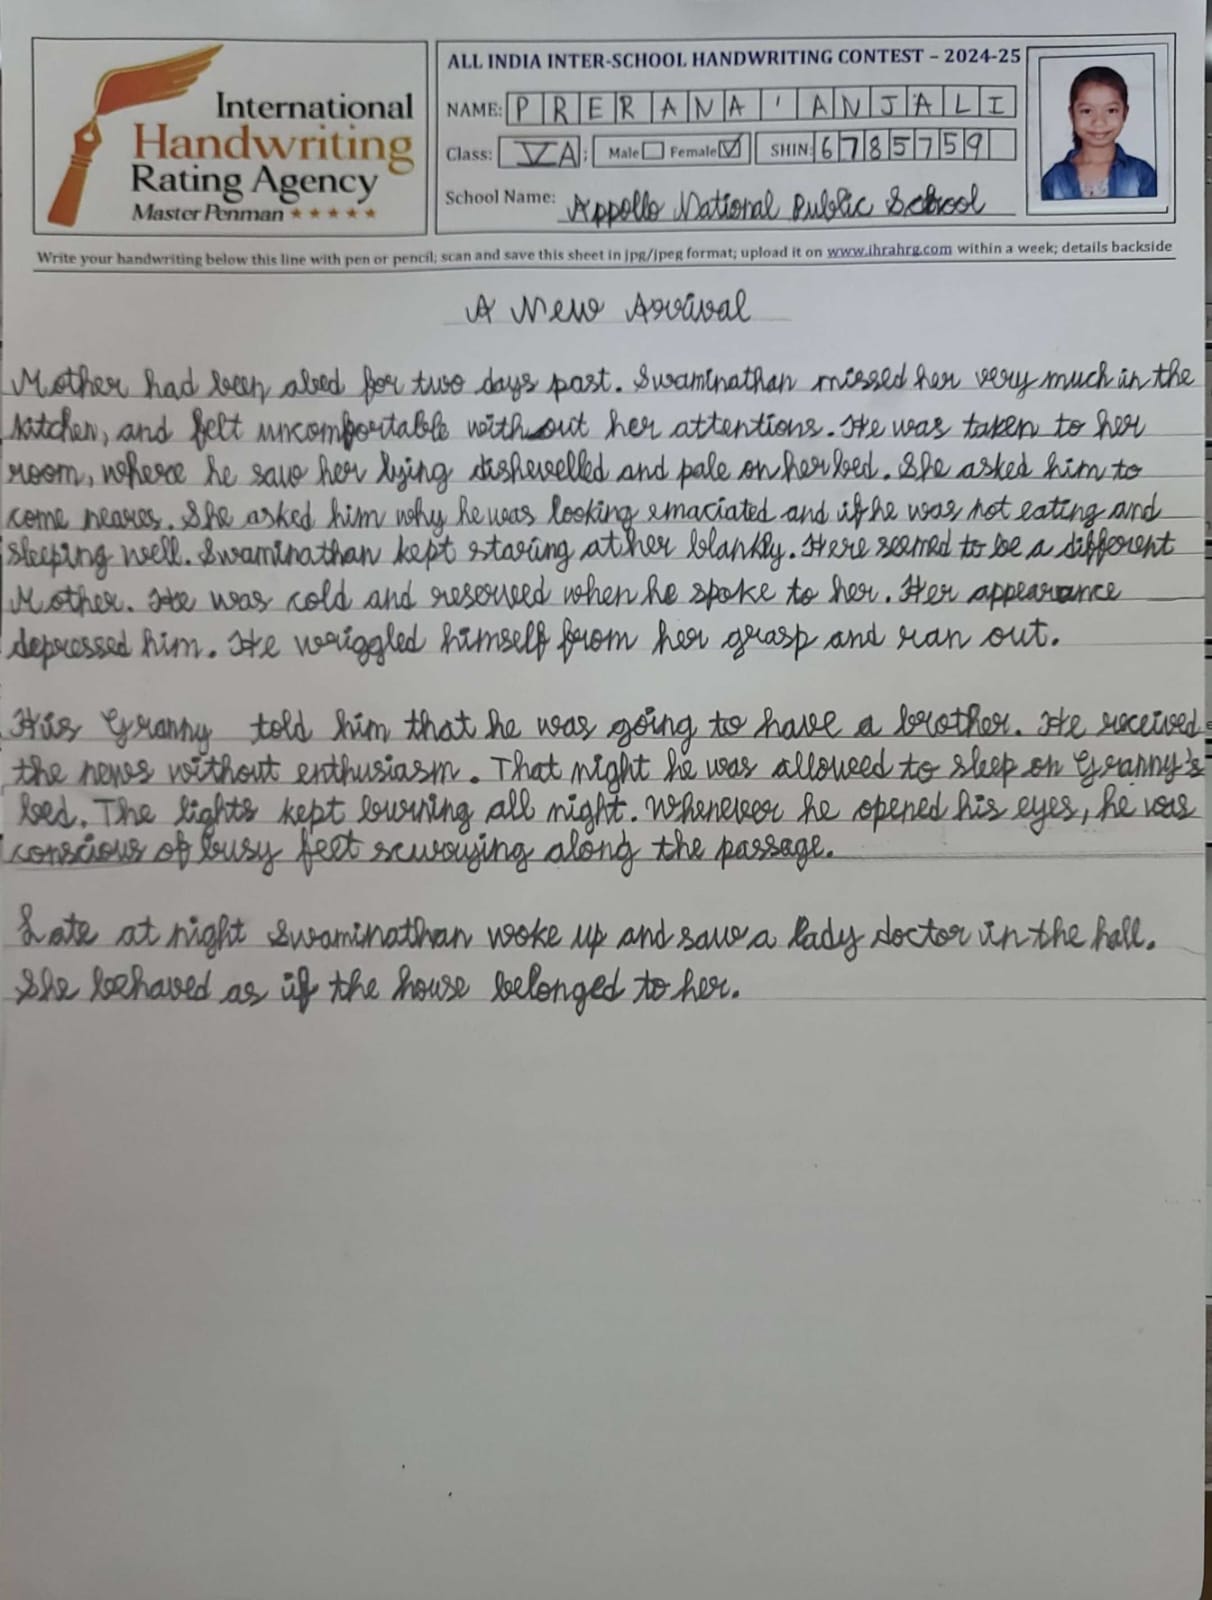 International
Handwriting
Rating Agency
Master Penman ★★★★★
ALL INDIA INTER-SCHOOL HANDWRITING CONTEST – 2024-25
NAME: PRERANA ' ANJALI
Class: VA; Male Female ✓ SHIN: 6785759
School Name: Appollo National Public School
Write your handwriting below this line with pen or pencil; scan and save this sheet in jpg/jpeg format; upload it on www.ihrahrg.com within a week; details backside
A New Arrival
Mother had been abed for two days past. Swaminathan missed her very much in the
kitchen, and felt uncomfortable without her attentions. He was taken to her
room, where he saw her lying dishevelled and pale on her bed. She asked him to
come neares. She asked him why he was looking emaciated and if he was not eating and
sleeping well. Swaminathan kept staring at her blankly. Here seemed to be a different
Mother. He was cold and reserved when he spoke to her. Her appearance
depressed him. He wriggled himself from her grasp and ran out.
His Granny told him that he was going to have a brother. He received
the news without enthusiasm. That night he was allowed to sleep on Granny's
bed. The lights kept burning all night. Whenever he opened his eyes, he was
conscious of busy feet scurrying along the passage.
Late at night Swaminathan woke up and saw a lady doctor in the hall.
She behaved as if the house belonged to her.